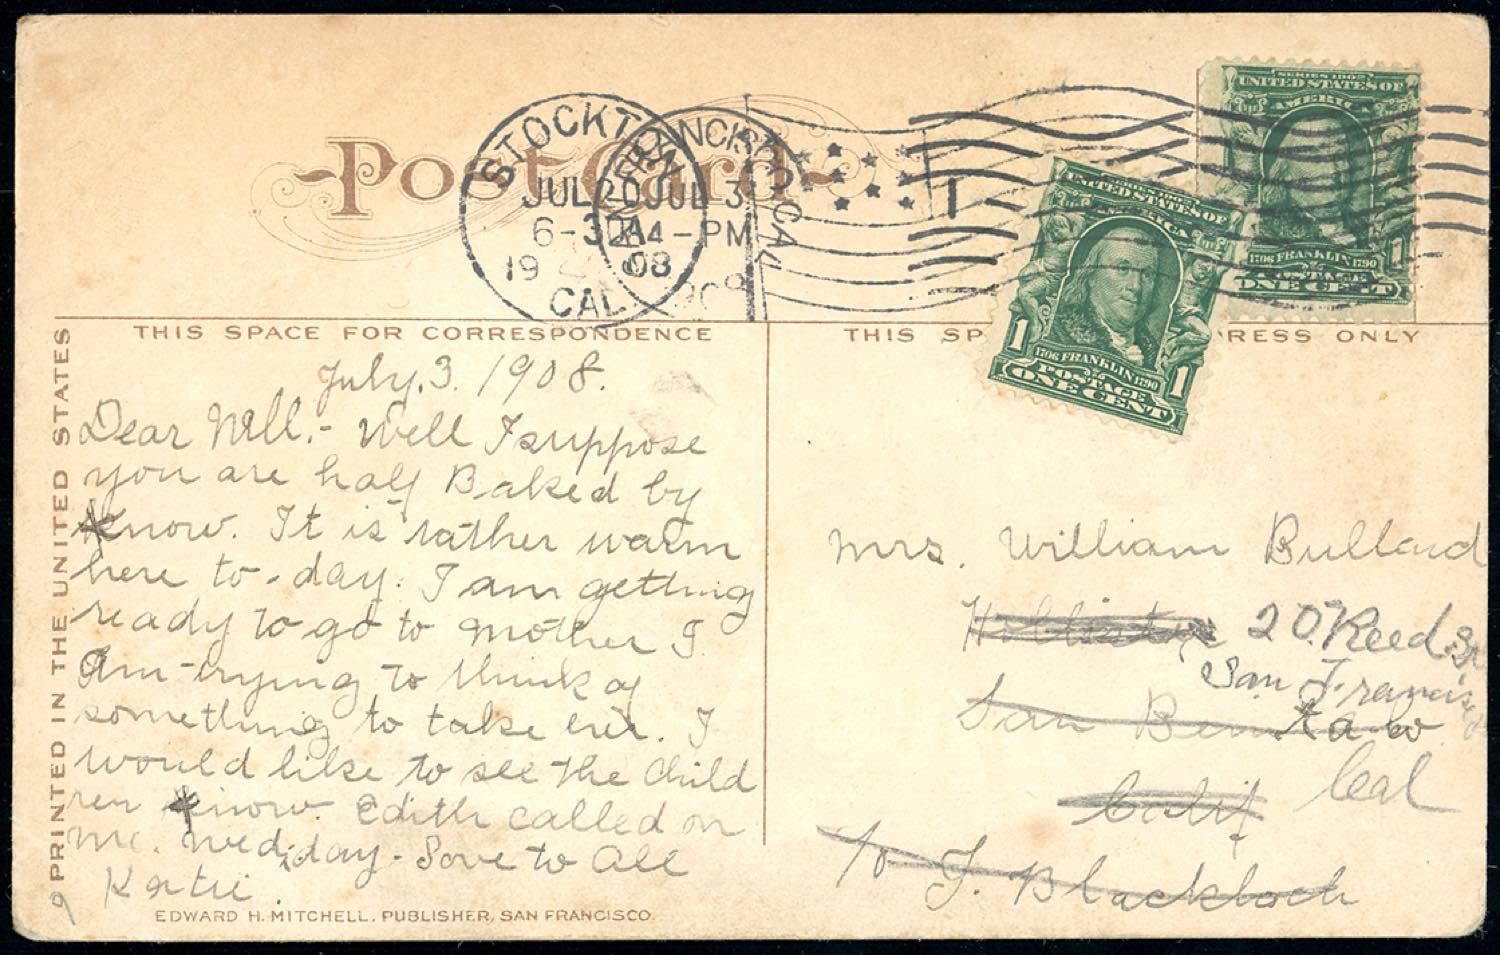 Post Card
STOCKTON
JUL 20
6-30A
1908
CAL.
SAN FRANCISCO, CAL.
JUL 3
4-PM
1908
SERIES 1902
UNITED STATES OF
AMERICA
1706 FRANKLIN 1790
POSTAGE
ONE CENT
SERIES 1902
UNITED STATES OF
AMERICA
1 1
1706 FRANKLIN 1790
POSTAGE
ONE CENT
THIS SPACE FOR CORRESPONDENCE
July. 3. 1908.
Dear Will.- Well I suppose
you are half Baked by
know. It is rather warm
here to-day. I am getting
ready to go to Mother I
Am trying to think of
something to take her. I
would like to see the Child
ren know. Edith called on
me. Wednisday. Love to All
Katie.
THIS SP RESS ONLY
Mrs. William Bullard
Hollister 20. Reed St
San Francisco
San Benita Co
Calif Cal
c/o J. Blacklock
PRINTED IN THE UNITED STATES
EDWARD H. MITCHELL, PUBLISHER, SAN FRANCISCO.